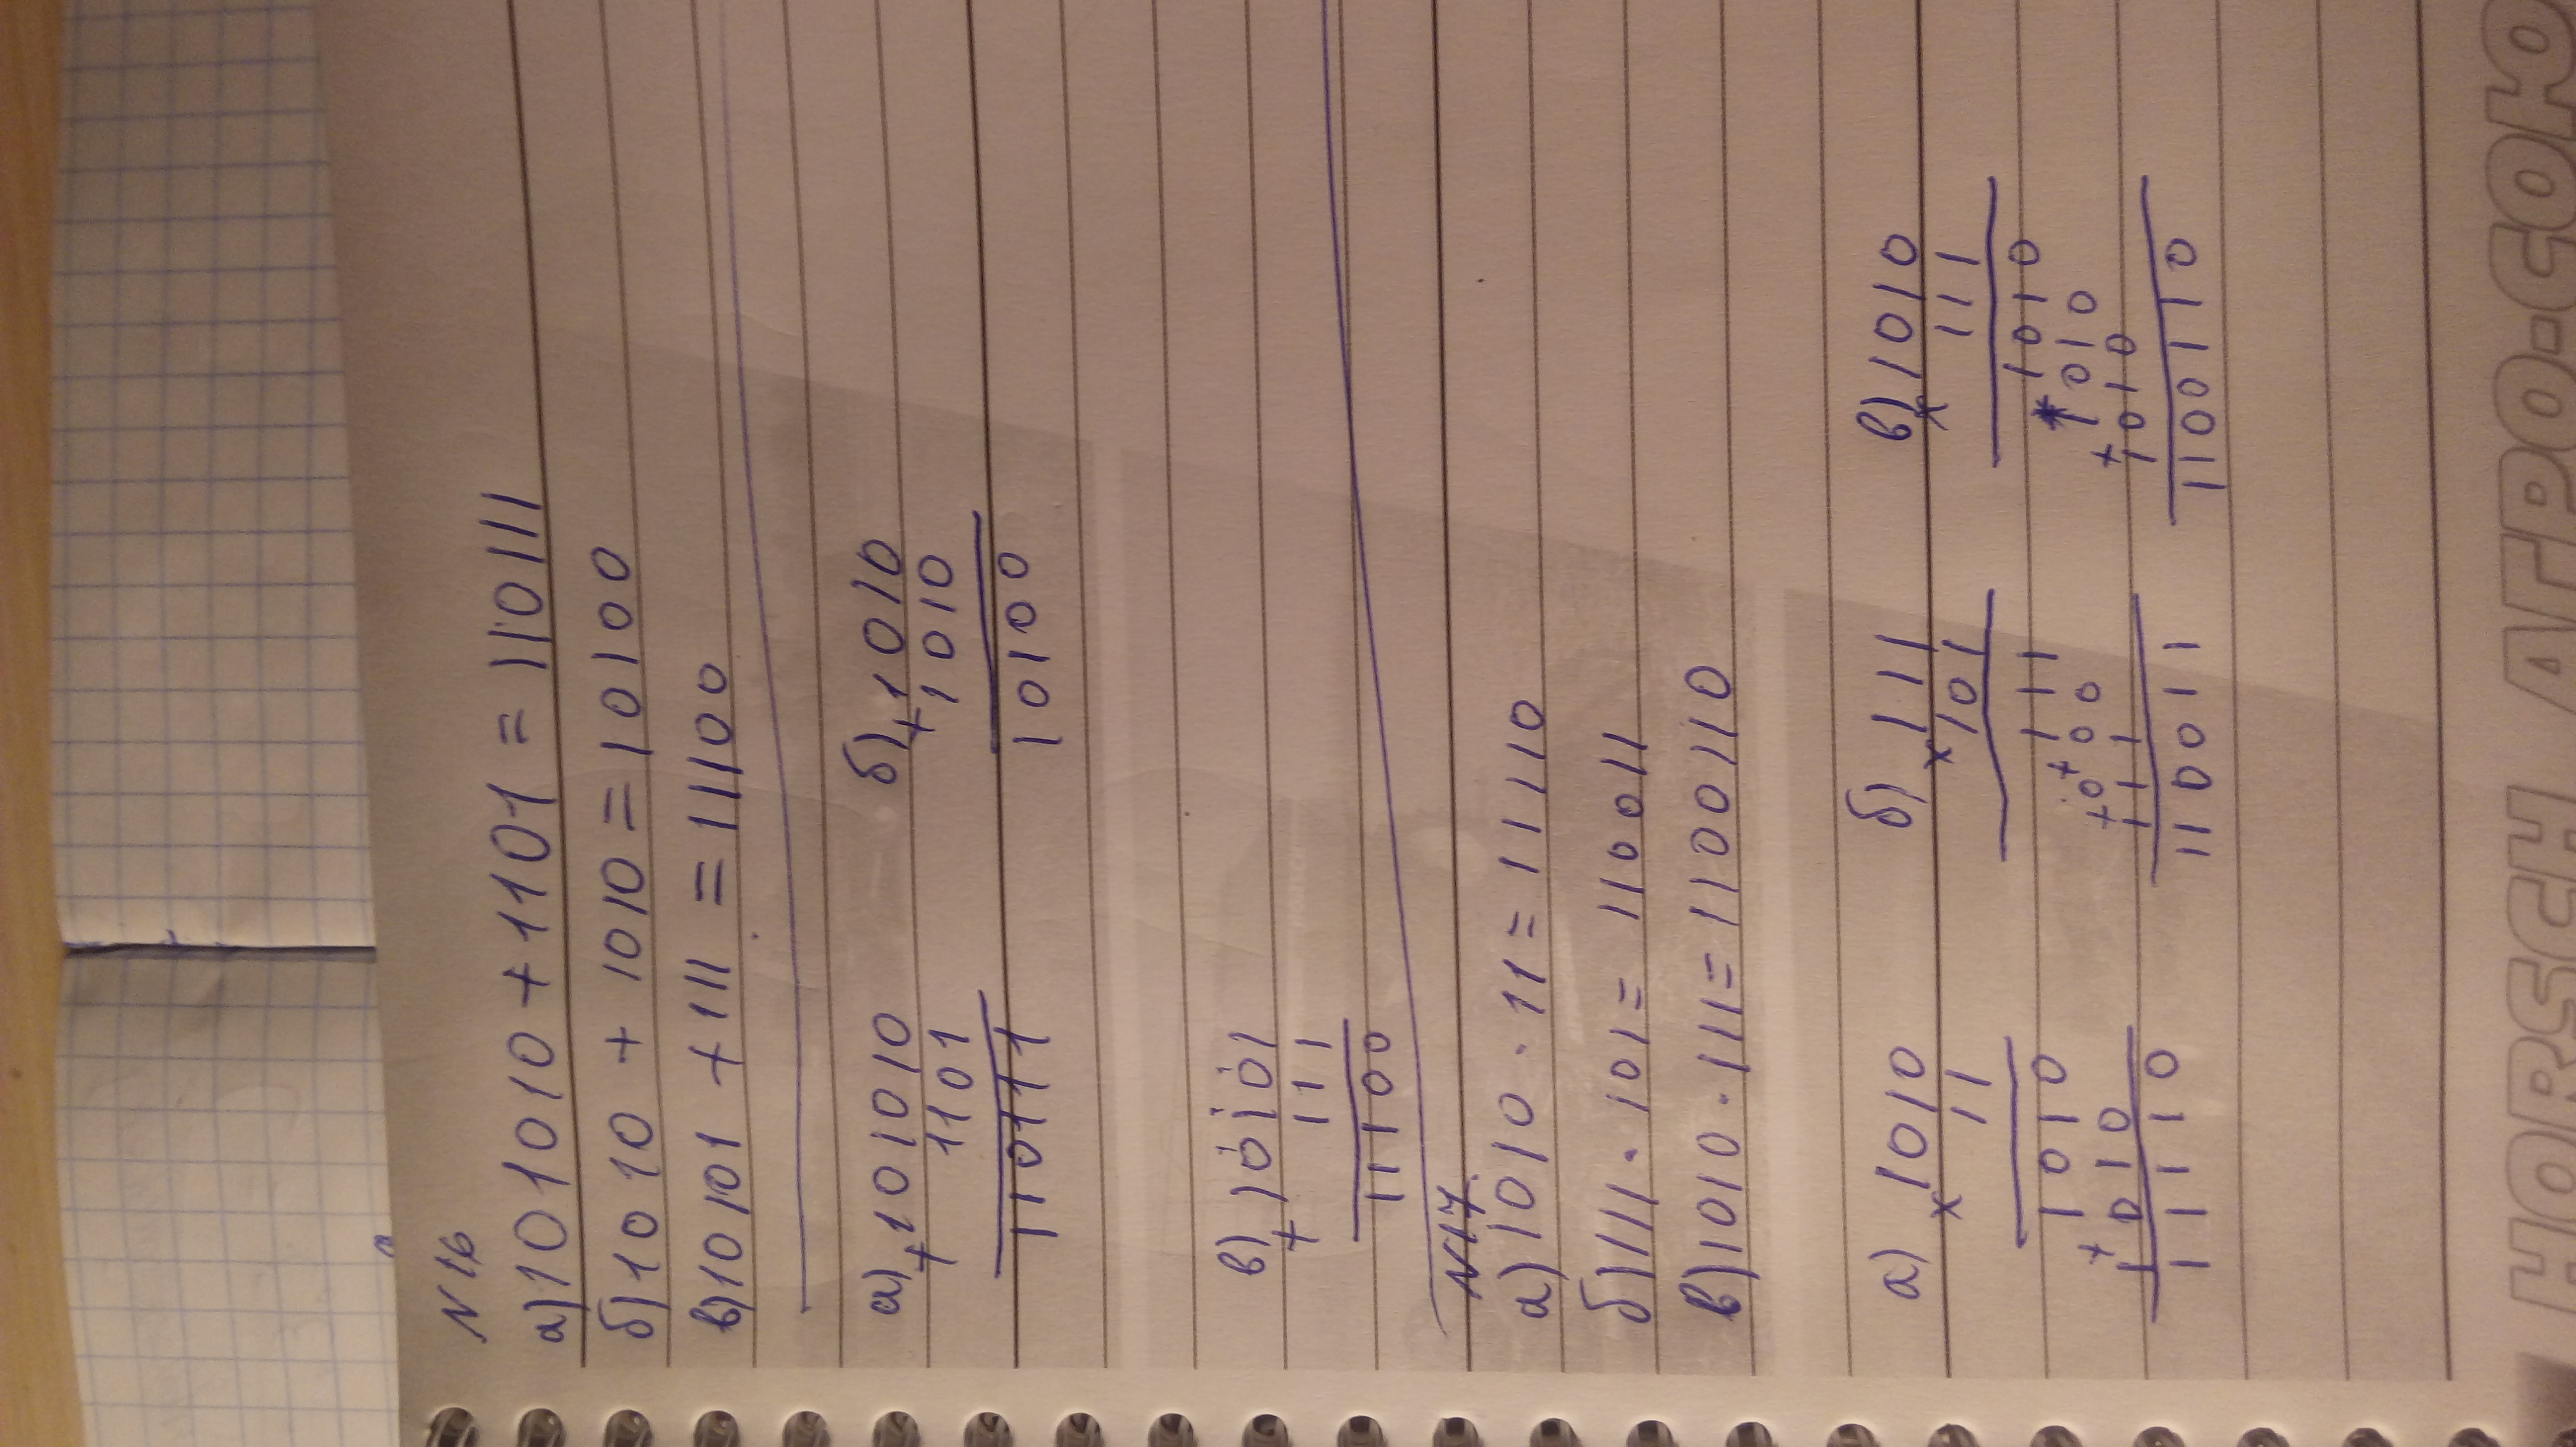 N 16
а) 101010 + 1101 = 110111
б) 1010 + 1010 = 10100
в) 10101 + 111 = 11100
а) + 101010 б) + 1010
1101 1010
110111 10100
в) + 10101
111
11100
N 17.
а) 1010 · 11 = 11110
б) 111 · 101 = 110011
в) 1010 · 111 = 1100110
а) × 1010 б) × 111 в) × 1010
11 101 111
1010 111 1010
+ 1010 + 000 1010
11110 + 111 + 1010
110011 1100110
HORSCH АГРО-СОЮ